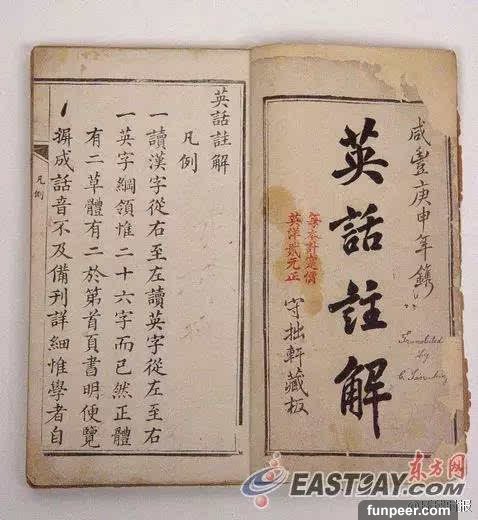 咸豐庚申年鐫
Translated
by
英話註解
每本計定價
英洋貳元正
守拙軒藏板
英話註解
凡例
一讀漢字從右至左讀英字從左至右
一英字綱領惟二十六字而已然正體
有二草體有二於第首頁書明便覽
一摒成話音不及備刊詳細惟學者自
凡例
东方网
EASTDAY.COM
funpeer.com